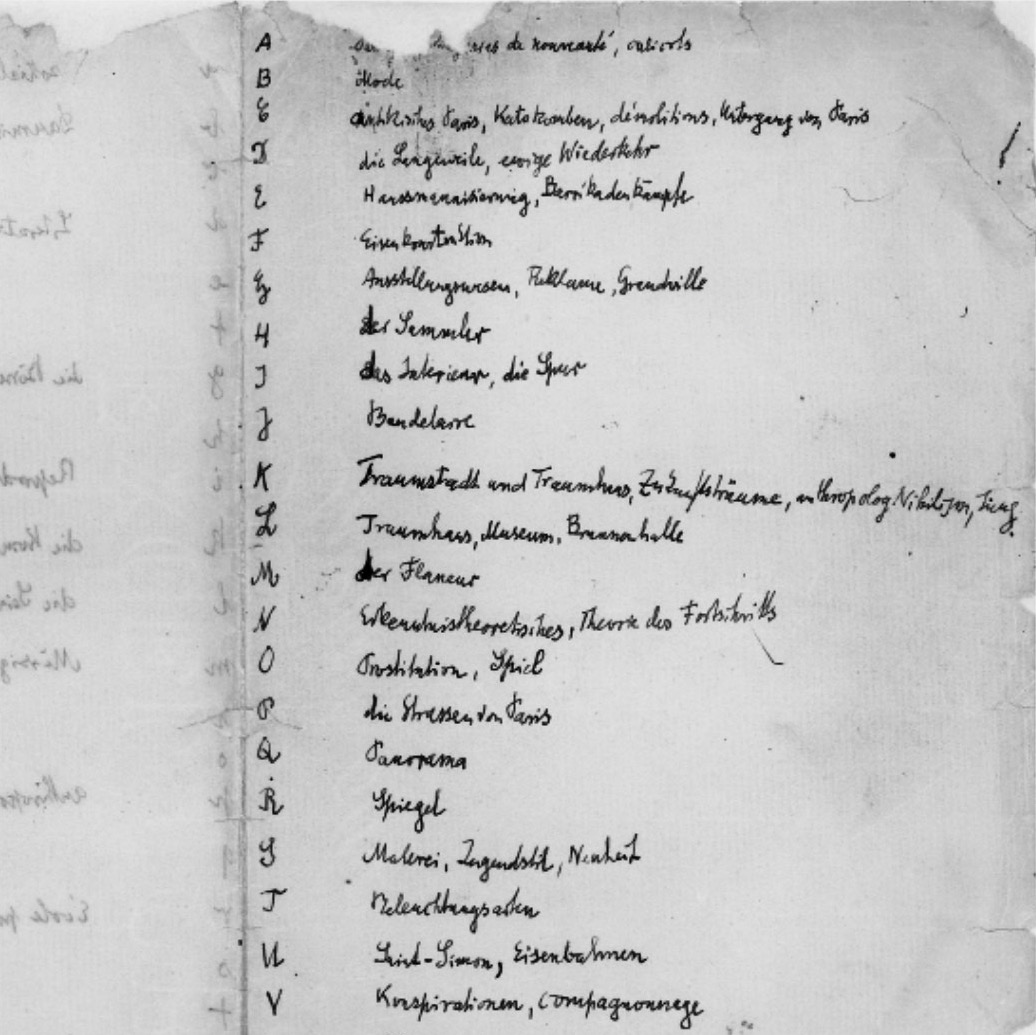 A magasins de nouveauté, calicots
B Mode
C antikisches Paris, Katakomben, démolitions, Untergang von Paris
D die Langeweile, ewige Wiederkehr
E Haussmannisierung, Barrikadenkämpfe
F Eisenkonstruktion
G Ausstellungswesen, Reklame, Grandville
H der Sammler
I das Interieur, die Spur
J Baudelaire
K Traumstadt und Traumhaus, Zukunftsträume, anthropolog. Nihilismus, Jung
L Traumhaus, Museum, Brunnenhalle
M der Flaneur
N Erkenntnistheoretisches, Theorie des Fortschritts
O Prostitution, Spiel
P die Strassen von Paris
Q Panorama
R Spiegel
S Malerei, Jugendstil, Neuheit
T Beleuchtungsarten
U Saint-Simon, Eisenbahnen
V Konspirationen, Compagnonnage